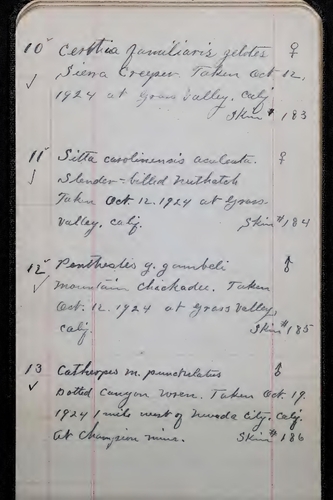 10 Certhia familiaris zelotes ♀
✓ Sierra Creeper. Taken Oct 12,
1924 at Grass Valley, Calif
Skin # 183
11 Sitta carolinensis aculeata. ♀
Slender-billed Nuthatch
Taken Oct. 12. 1924 at Grass
Valley, Calif. Skin # 184
12 Penthestes g. gambeli ♂
✓ Mountain Chickadee. Taken
Oct. 12. 1924 at Grass Valley,
Calif. Skin # 185
13 Catherpes m. punctulatus ♂
✓ Dotted Canyon Wren. Taken Oct. 19.
1924 1 mile west of Nevada City, Calif.
at Champion mine. Skin # 186